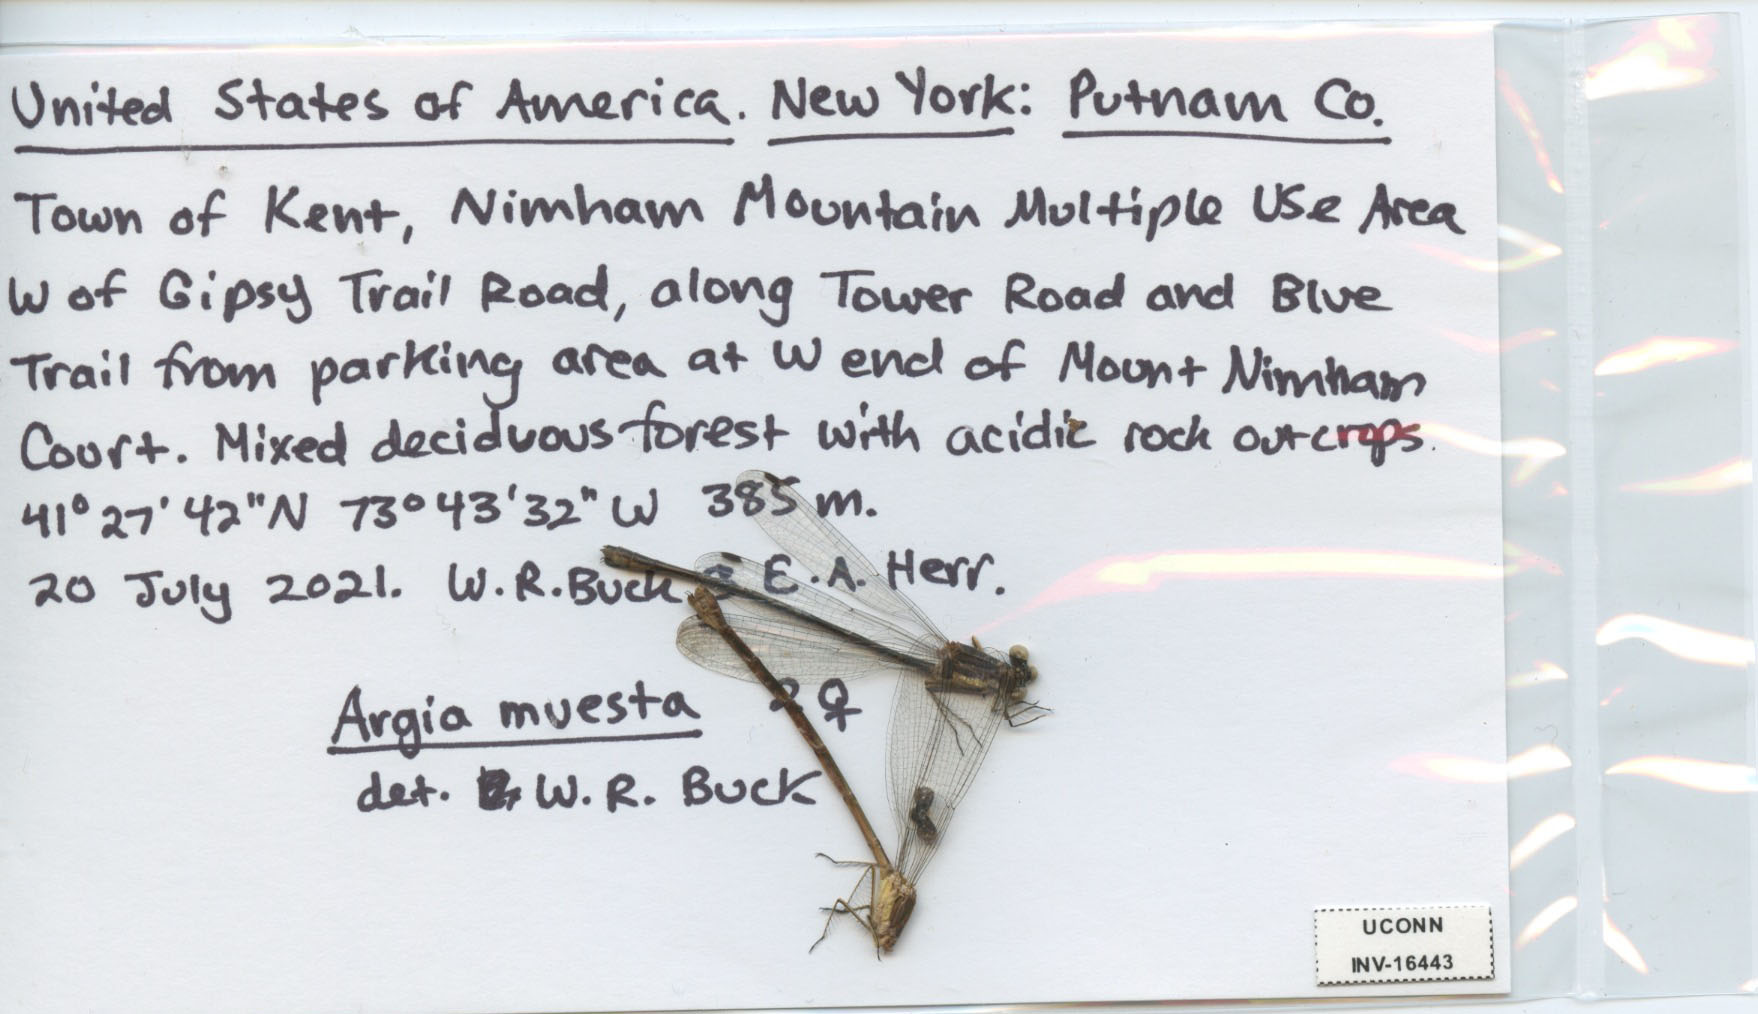 United States of America. New York: Putnam Co.
Town of Kent, Nimham Mountain Multiple Use Area
W of Gipsy Trail Road, along Tower Road and Blue
Trail from parking area at W end of Mount Nimham
Court. Mixed deciduous forest with acidic rock outcrops.
41° 27' 42" N 73° 43' 32" W 385 m.
20 July 2021. W.R. Buck & E.A. Herr.
Argia muesta 2 ♀
det. W. R. Buck
UCONN
INV-16443